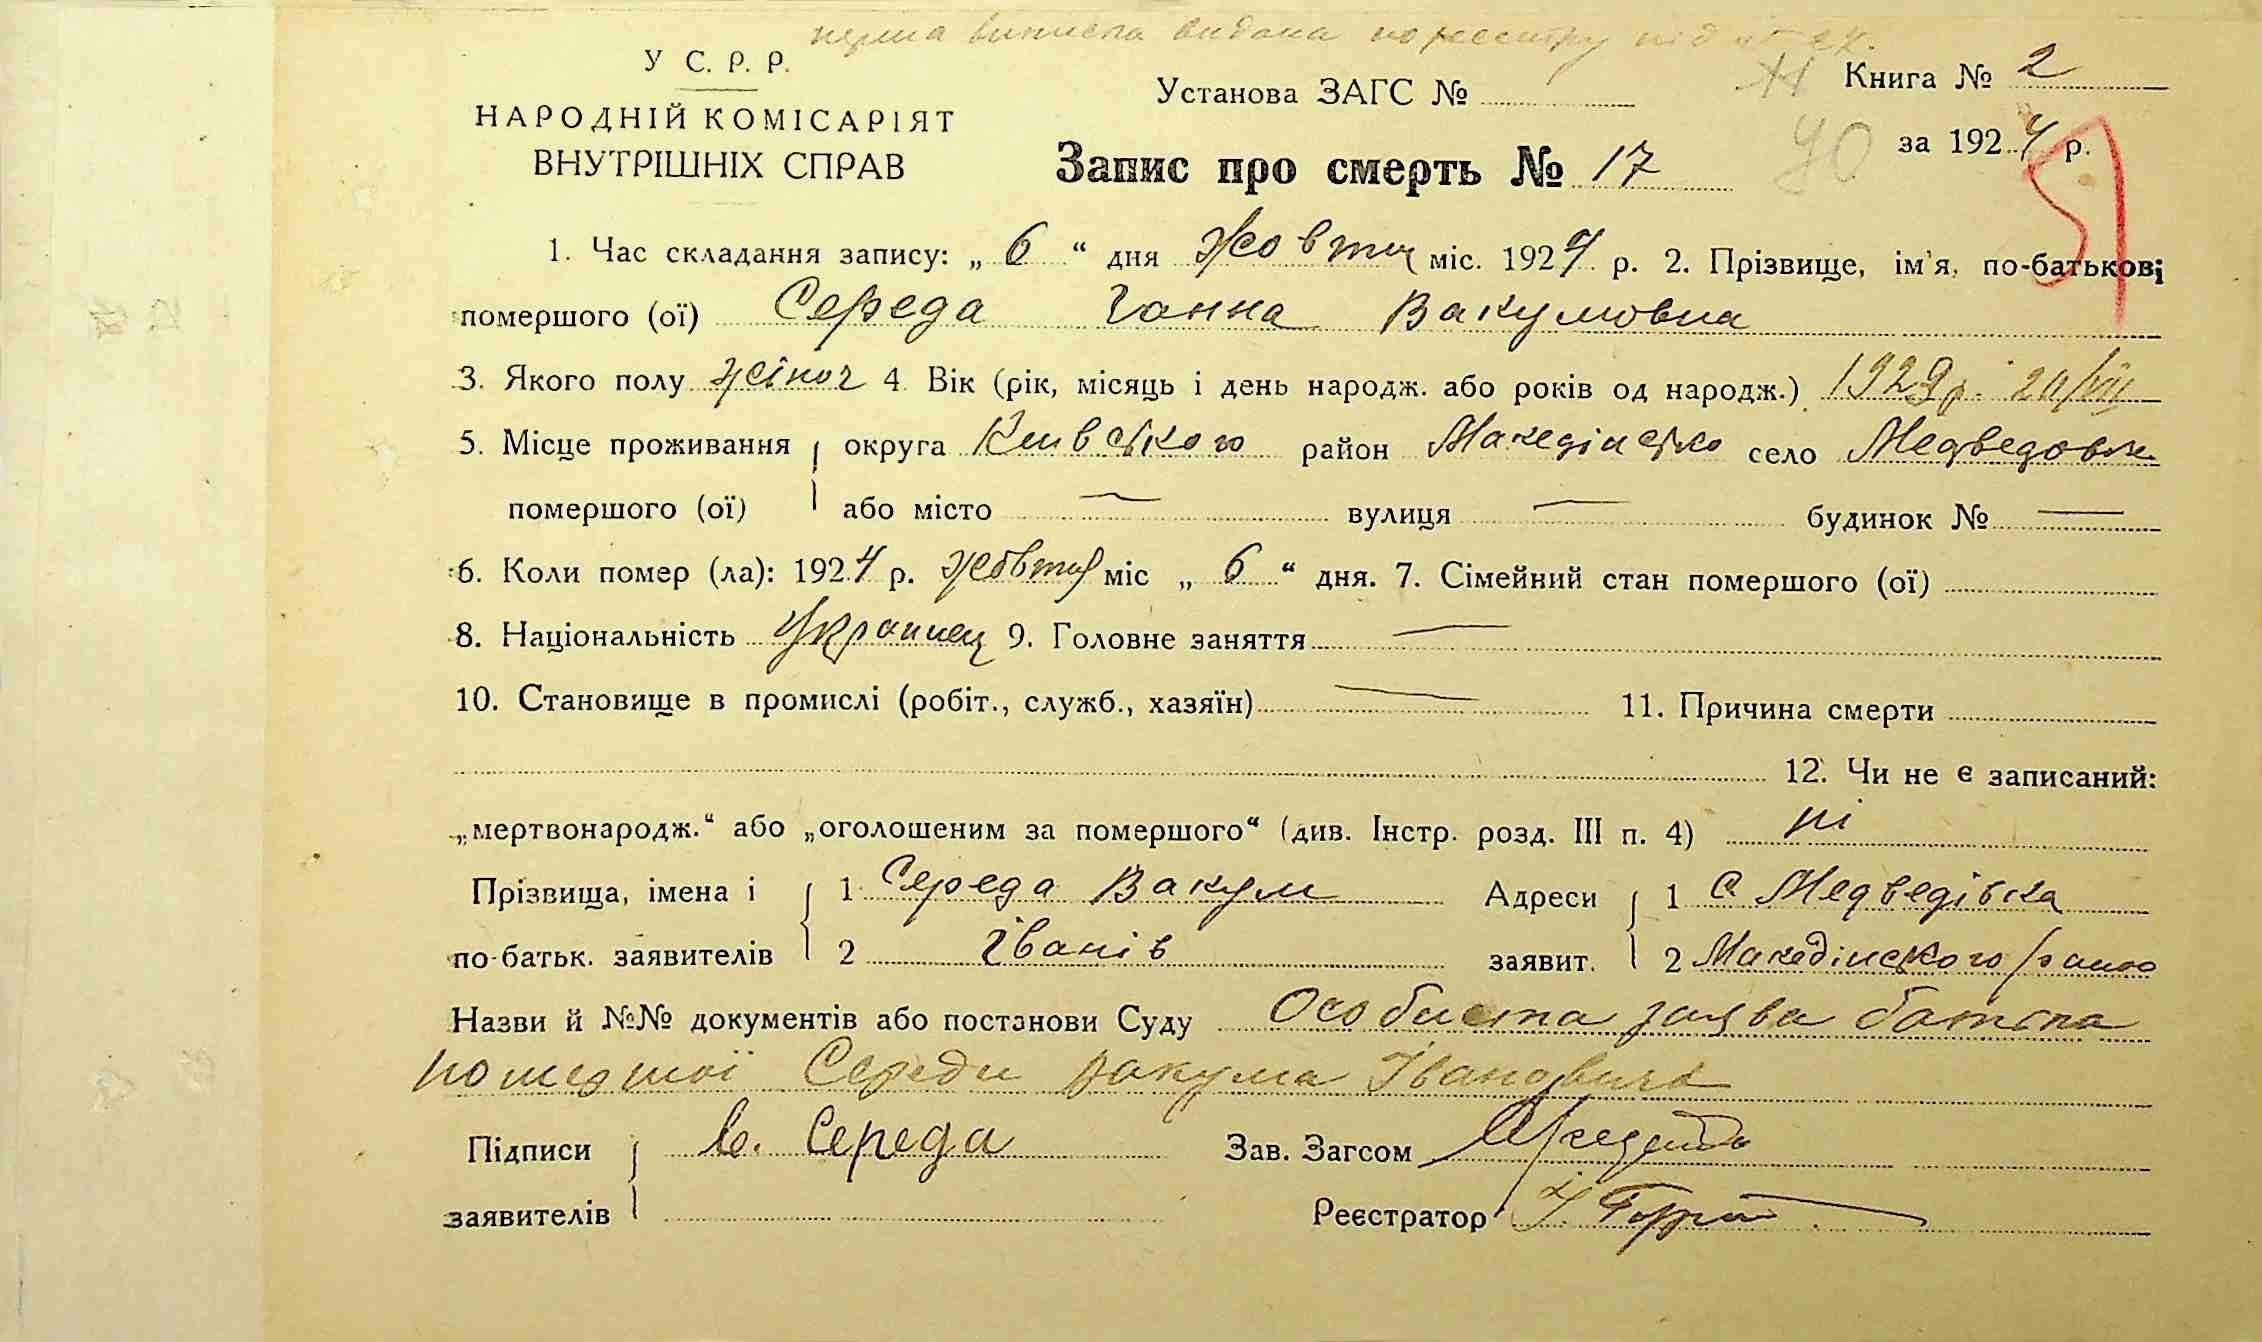 перша виписка видана по реєстру під №
У С. Р. Р.
НАРОДНІЙ КОМІСАРІЯТ
ВНУТРІШНІХ СПРАВ
Установа ЗАГС №
Книга № 2
за 1924 р.
Запис про смерть № 17
1. Час складання запису: „ 6 “ дня Жовтня міс. 1924 р. 2. Прізвище, ім'я, по-батькові
помершого (ої) Середа Ганна Вакумовна
3. Якого полу жіноч 4. Вік (рік, місяць і день народж. або років од народж.) 192
5. Місце проживання округа Київського район село Медведовк
помершого (ої) або місто — вулиця — будинок № —
6. Коли помер (ла): 1924 р. жовтня міс „ 6 “ дня. 7. Сімейний стан помершого (ої)
8. Національність Українец 9. Головне заняття —
10. Становище в промислі (робіт., служб., хазяїн) — 11. Причина смерти
12. Чи не є записаний:
„мертвонародж.“ або „оголошеним за помершого“ (див. Інстр. розд. III п. 4) ні
Прізвища, імена і 1 Середа Вакум Адреси 1 С. Медведівка
по-батьк. заявителів 2 Іванів заявит. 2
Назви й №№ документів або постанови Суду Особиста заява батька
Середи Вакума Івановича
Підписи В. Середа Зав. Загсом
заявителів Реєстратор